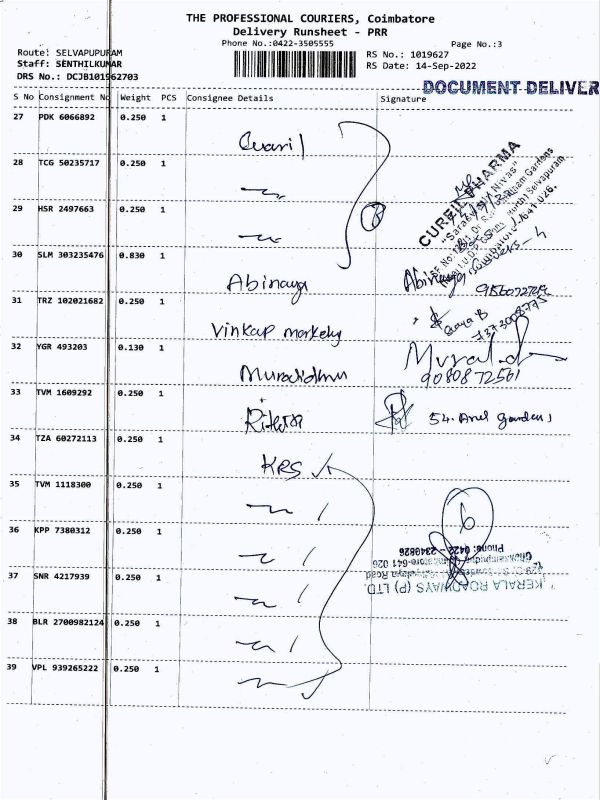 THE PROFESSIONAL COURIERS, Coimbatore
Delivery Runsheet - PRR
Phone No.:0422-3505555 Page No.:3
Route: SELVAPUPURAM RS No.: 1019627
Staff: SENTHILKUMAR RS Date: 14-Sep-2022
DRS No.: DCJB101962703
DOCUMENT DELIVER
S No Consignment No Weight PCS Consignee Details Signature
27 PDK 6066892 0.250 1
28 TCG 50235717 0.250 1
CUREIL PHARMA
29 HSR 2497663 0.250 1
30 SLM 303235476 0.830 1
Abinaya Abinaya
31 TRZ 102021682 0.250 1
Vinkap
32 YGR 493203 0.130 1
9080872561
33 TVM 1609292 0.250 1
54. Arul Gardens
34 TZA 60272113 0.250 1
KRS
35 TVM 1118300 0.250 1
6
36 KPP 7380312 0.250 1
Phone: 0422 - 2340826
37 SNR 4217939 0.250 1
KERALA ROADWAYS (P) LTD
38 BLR 2700982124 0.250 1
39 VPL 939265222 0.250 1